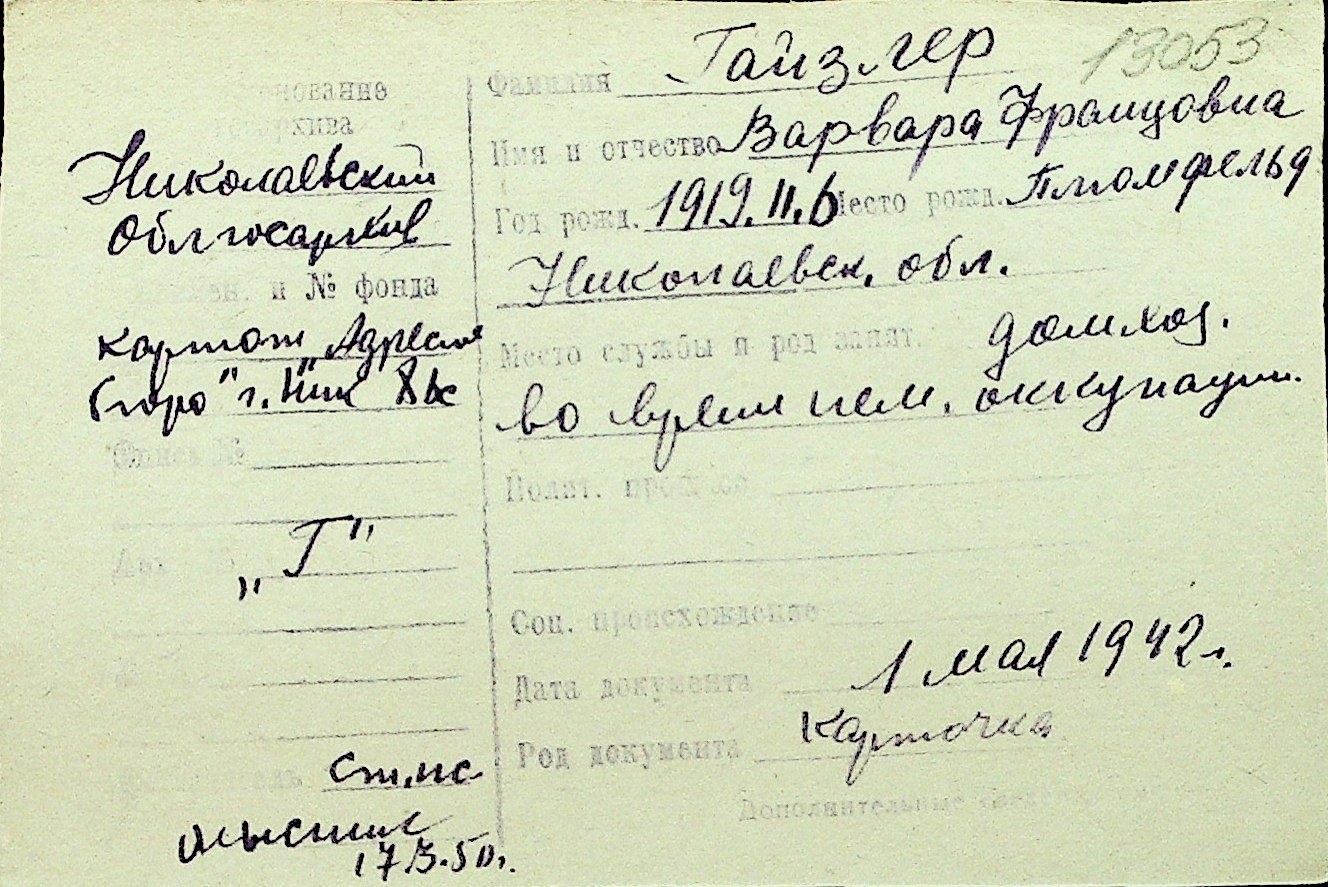 13053
нование
госархива
Николаевский
Облгосархив
и № фонда
картот. "Адресн
бюро" г. Ник
Опись №
"Г"
17.3.50г.
Фамилия Гайзлер
Имя и отчество Варвара Францовна
Год рожд. 1919.11.6 Место рожд.
Николаевск. обл.
Место службы и род занят. домхоз.
во время нем. оккупации.
Полит.
Соц. происхождение
Дата документа 1 мая 1942 г.
Род документа Карточка
Дополнительные